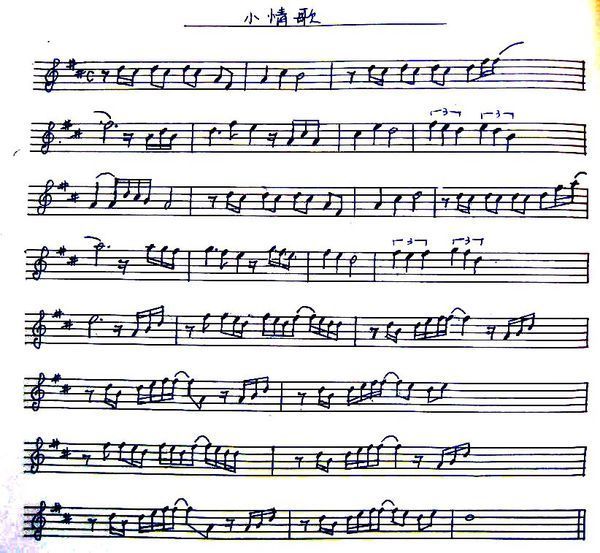 小情歌
C
3 3
3 3